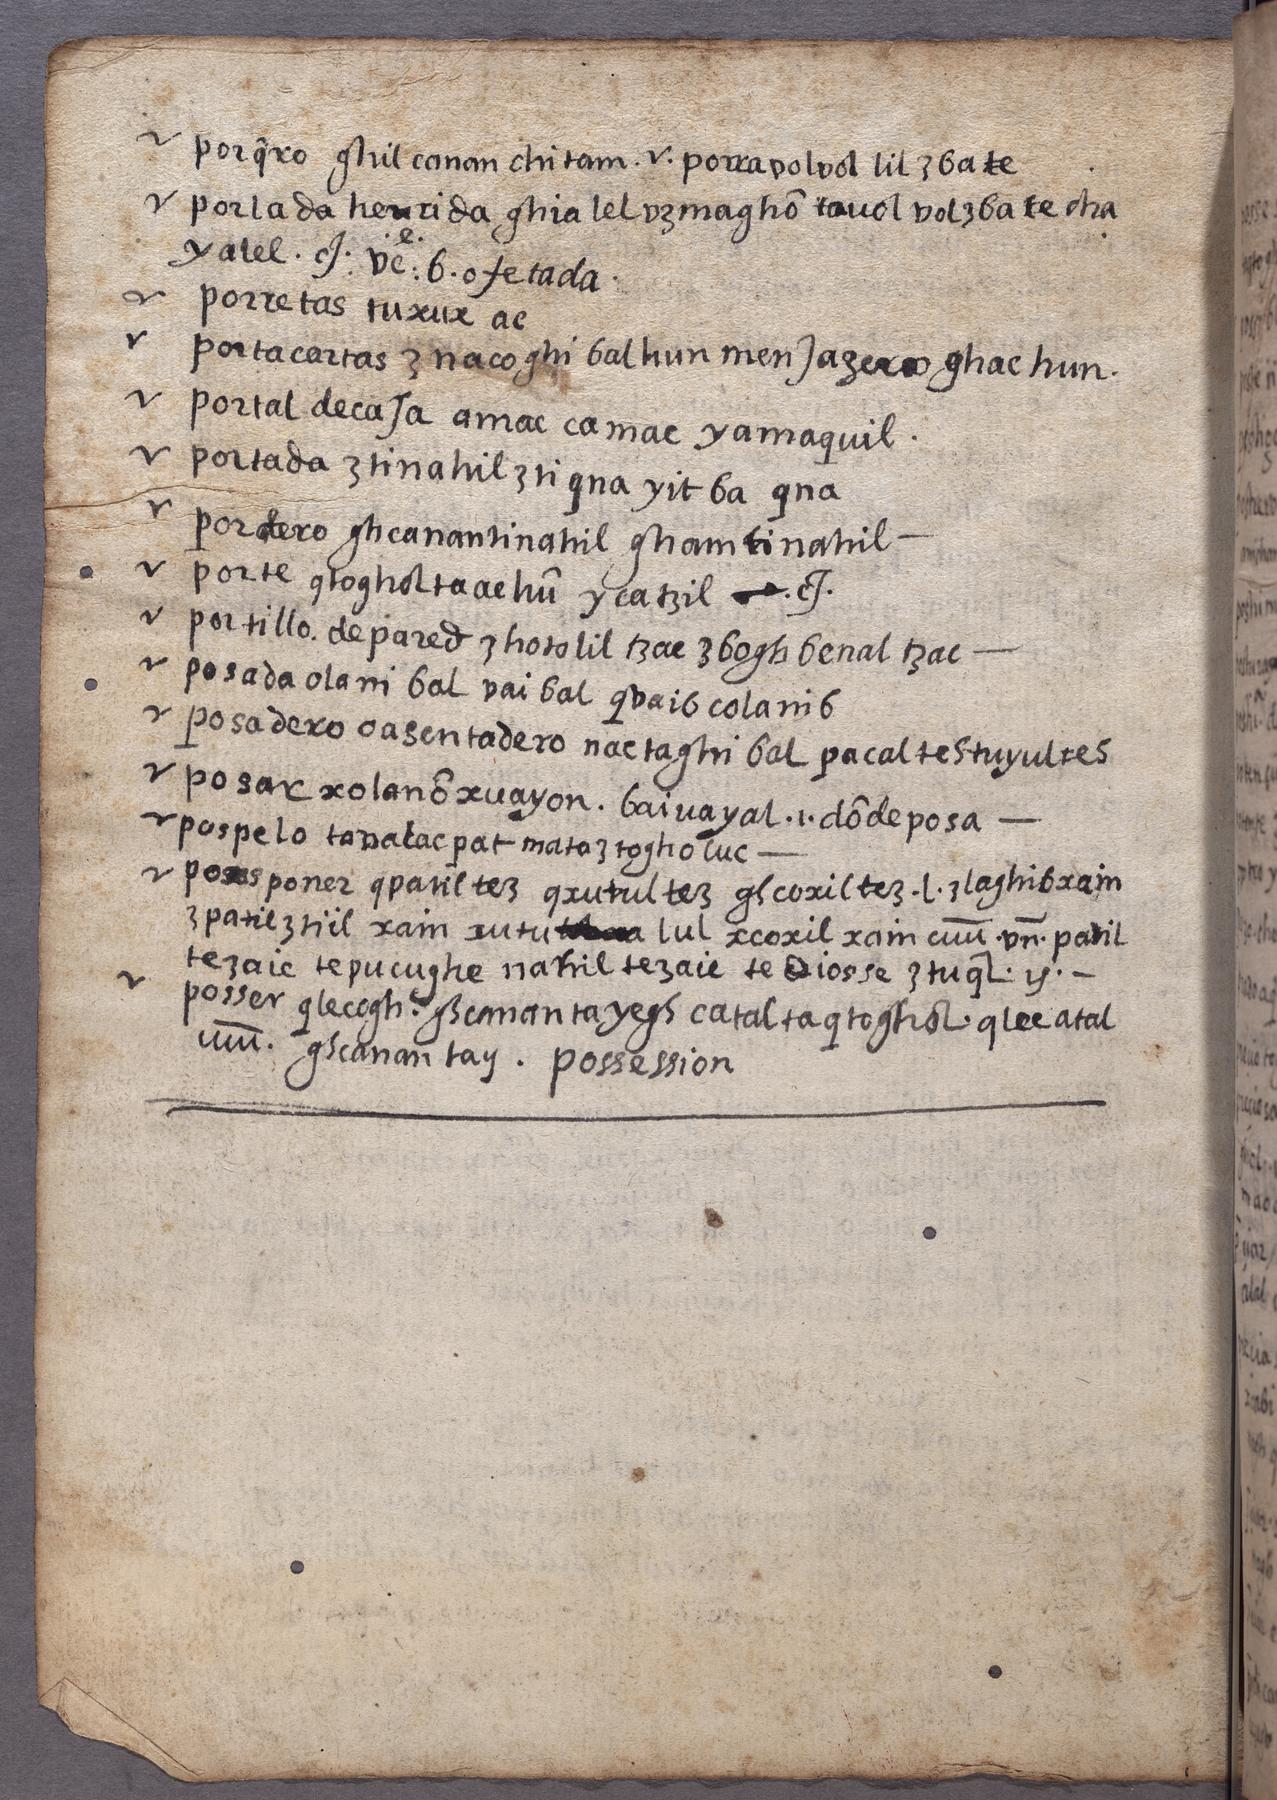 v porq̃ro ghil canan chitam. v. porra volvol lil zbate
v porlada herrida ghialel vzmaghõ tauol volzbate cha
yalel. cJ. vē: b. ofetada.
v porretas tuxux ac
v portacartas z nacoghibalhun menJazero ghac hun.
v portal decaJa amac camac yamaquil.
v portada ztinahil zti qna yitba qna
v pordero ghcanantinahil ghamtinahil—
v porte qtogholtaachũ ycatzil .cJ.
v portillo. de pared zhotolil tzac zbogh benal tzac—
v posada olanibal vaibal qvaib colanib
v posadero oasentadero nactaghibal pacaltestuyultes
v posar xolanõ xuayon. baiuayal .i. dõde posa—
v pospelo tavalacpat mataztogholuc—
v posponer qpatiltez qxutultez ghcoxiltez .l. zlaghibxain
zpatil ztiil xain xutu lul xcoxil xain .vñ. patil
tezaic tepucughe nahil tezaic te Diosse ztuq̃l. y.—
v posser qlecogh. ghcanantayegh catal taqtoghol. qlecatal
ghcanan tay. possession